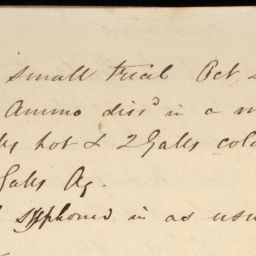 small trial Oct
Ammo diss'd in a
hot & 2 Galls cold
Galls Aq.
syphoned in as usu